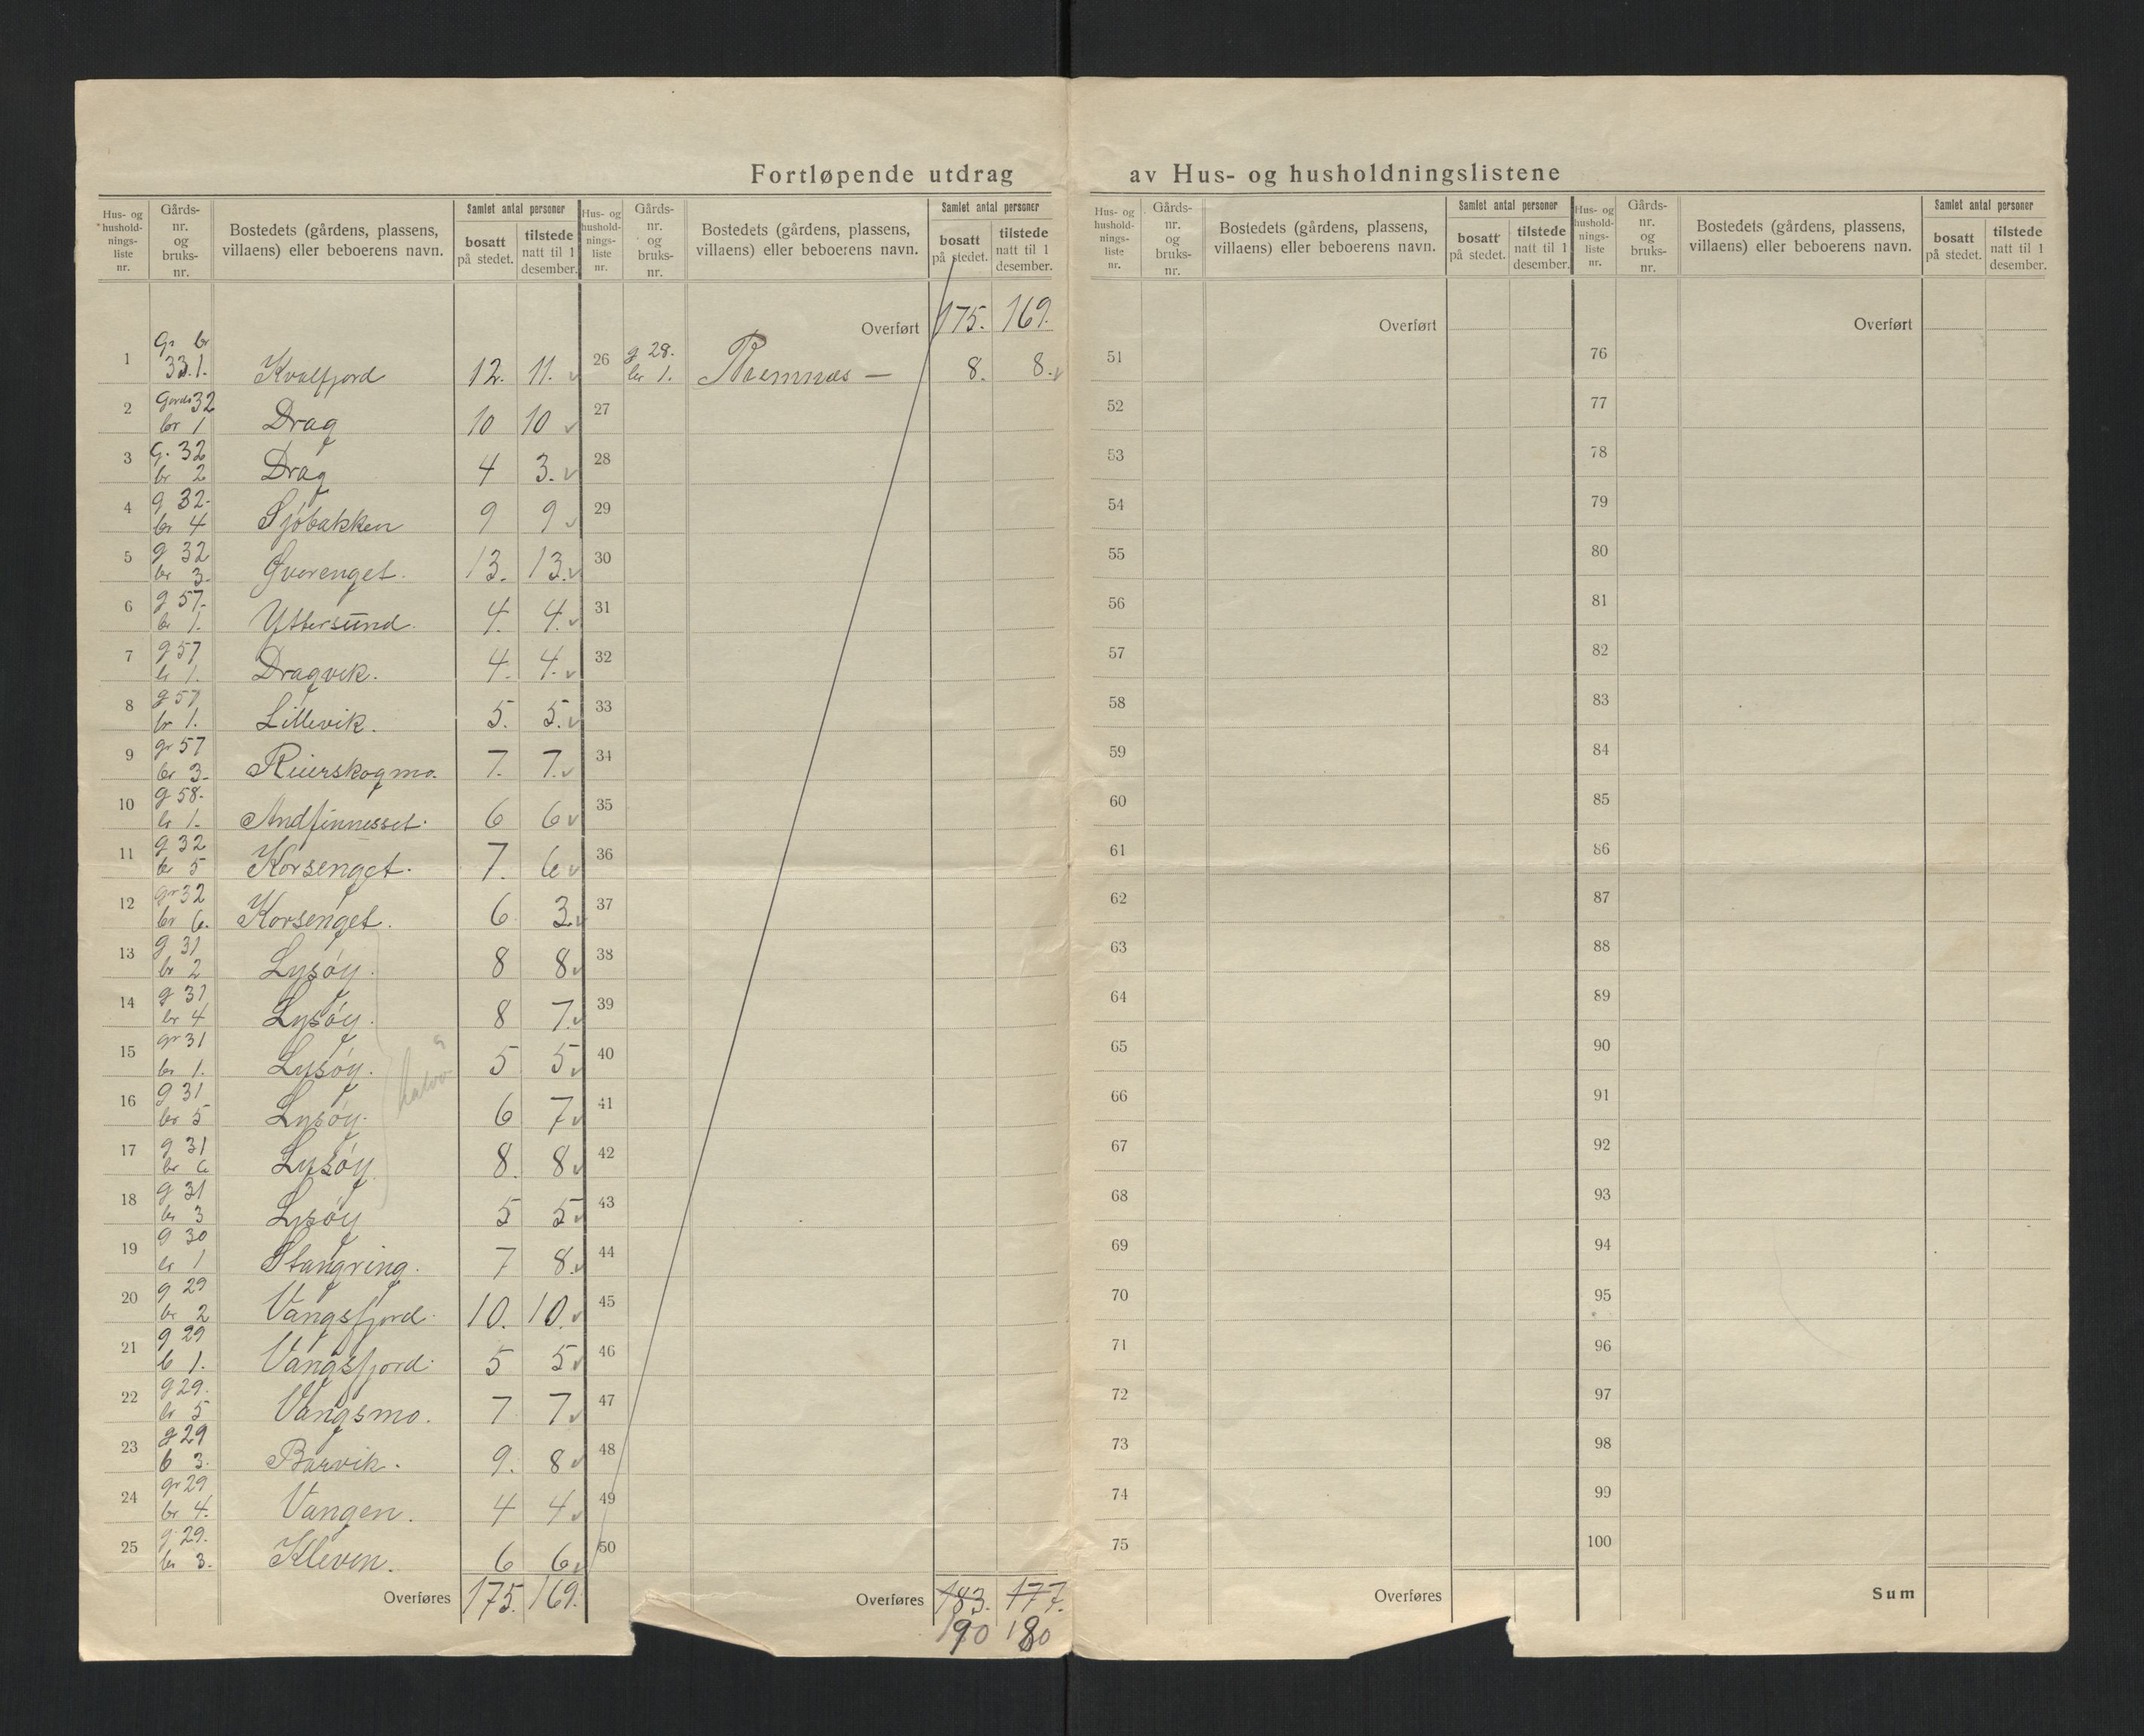 Fortløpende utdrag av Hus- og husholdningslistene
Hus- og hushold-nings-liste nr. | Gårds-nr. og bruks-nr. | Bostedets (gårdens, plassens, villaens) eller beboerens navn. | Samlet antal personer | bosatt på stedet. | tilstede natt til 1 desember.
1 Gr br 33.1. Kvalfjord 12. 11.
2 Gards 32 br 1 Drag 10 10
3 G. 32 br 2 Drag 4 3.
4 g 32- br 4 Sjøbakken 9 9
5 g 32 br 3. Gverenget. 13. 13.
6 g 57. br 1. Yttersund. 4. 4.
7 g 57 br 1. Dragvik. 4. 4.
8 g 57 br 1. Lillevik. 5. 5.
9 gr 57 br 3. Reierskogmo. 7. 7.
10 g 58. br 1. Andfinnesset. 6 6
11 g 32 br 5 Korsenget. 7. 6
12 gr 32 br 6. Korsenget. 6 3.
13 g 31 br 2 Lysøy. 8 8
14 g 31 br 4 Lysøy. 8 7.
15 gr 31 br 1. Lysøy. 5 5
16 g 31 br 5 Lysøy. 6 7
17 g 31 br 6 Lysøy 8. 8
18 g 31 br 3 Lysøy 5 5
19 g 30 br 1 Stangring. 7 8.
20 g 29 br 2 Vangsfjord. 10. 10.
21 g 29 b 1. Vangsfjord. 5 5
22 g 29. br 5 Vangsmo. 7 7
23 g 29 b 3. Barvik. 9. 8
24 gr 29 br 4. Vangen. 4 4
25 g 29. br 3. Kleven. 6 6
Overføres 175. 169.
Hus- og hushold-nings-liste nr. | Gårds-nr. og bruks-nr. | Bostedets (gårdens, plassens, villaens) eller beboerens navn. | Samlet antal personer | bosatt på stedet. | tilstede natt til 1 desember.
Overført 175. 169.
26 g 29. br 1. 8. 8.
27
28
29
30
31
32
33
34
35
36
37
38
39
40
41
42
43
44
45
46
47
48
49
50
Overføres 183. 177.
190 180
Hus- og hushold-nings-liste nr. | Gårds-nr. og bruks-nr. | Bostedets (gårdens, plassens, villaens) eller beboerens navn. | Samlet antal personer | bosatt på stedet. | tilstede natt til 1 desember.
Overført
51
52
53
54
55
56
57
58
59
60
61
62
63
64
65
66
67
68
69
70
71
72
73
74
75
Overføres
Hus- og hushold-nings-liste nr. | Gårds-nr. og bruks-nr. | Bostedets (gårdens, plassens, villaens) eller beboerens navn. | Samlet antal personer | bosatt på stedet. | tilstede natt til 1 desember.
Overført
76
77
78
79
80
81
82
83
84
85
86
87
88
89
90
91
92
93
94
95
96
97
98
99
100
Sum